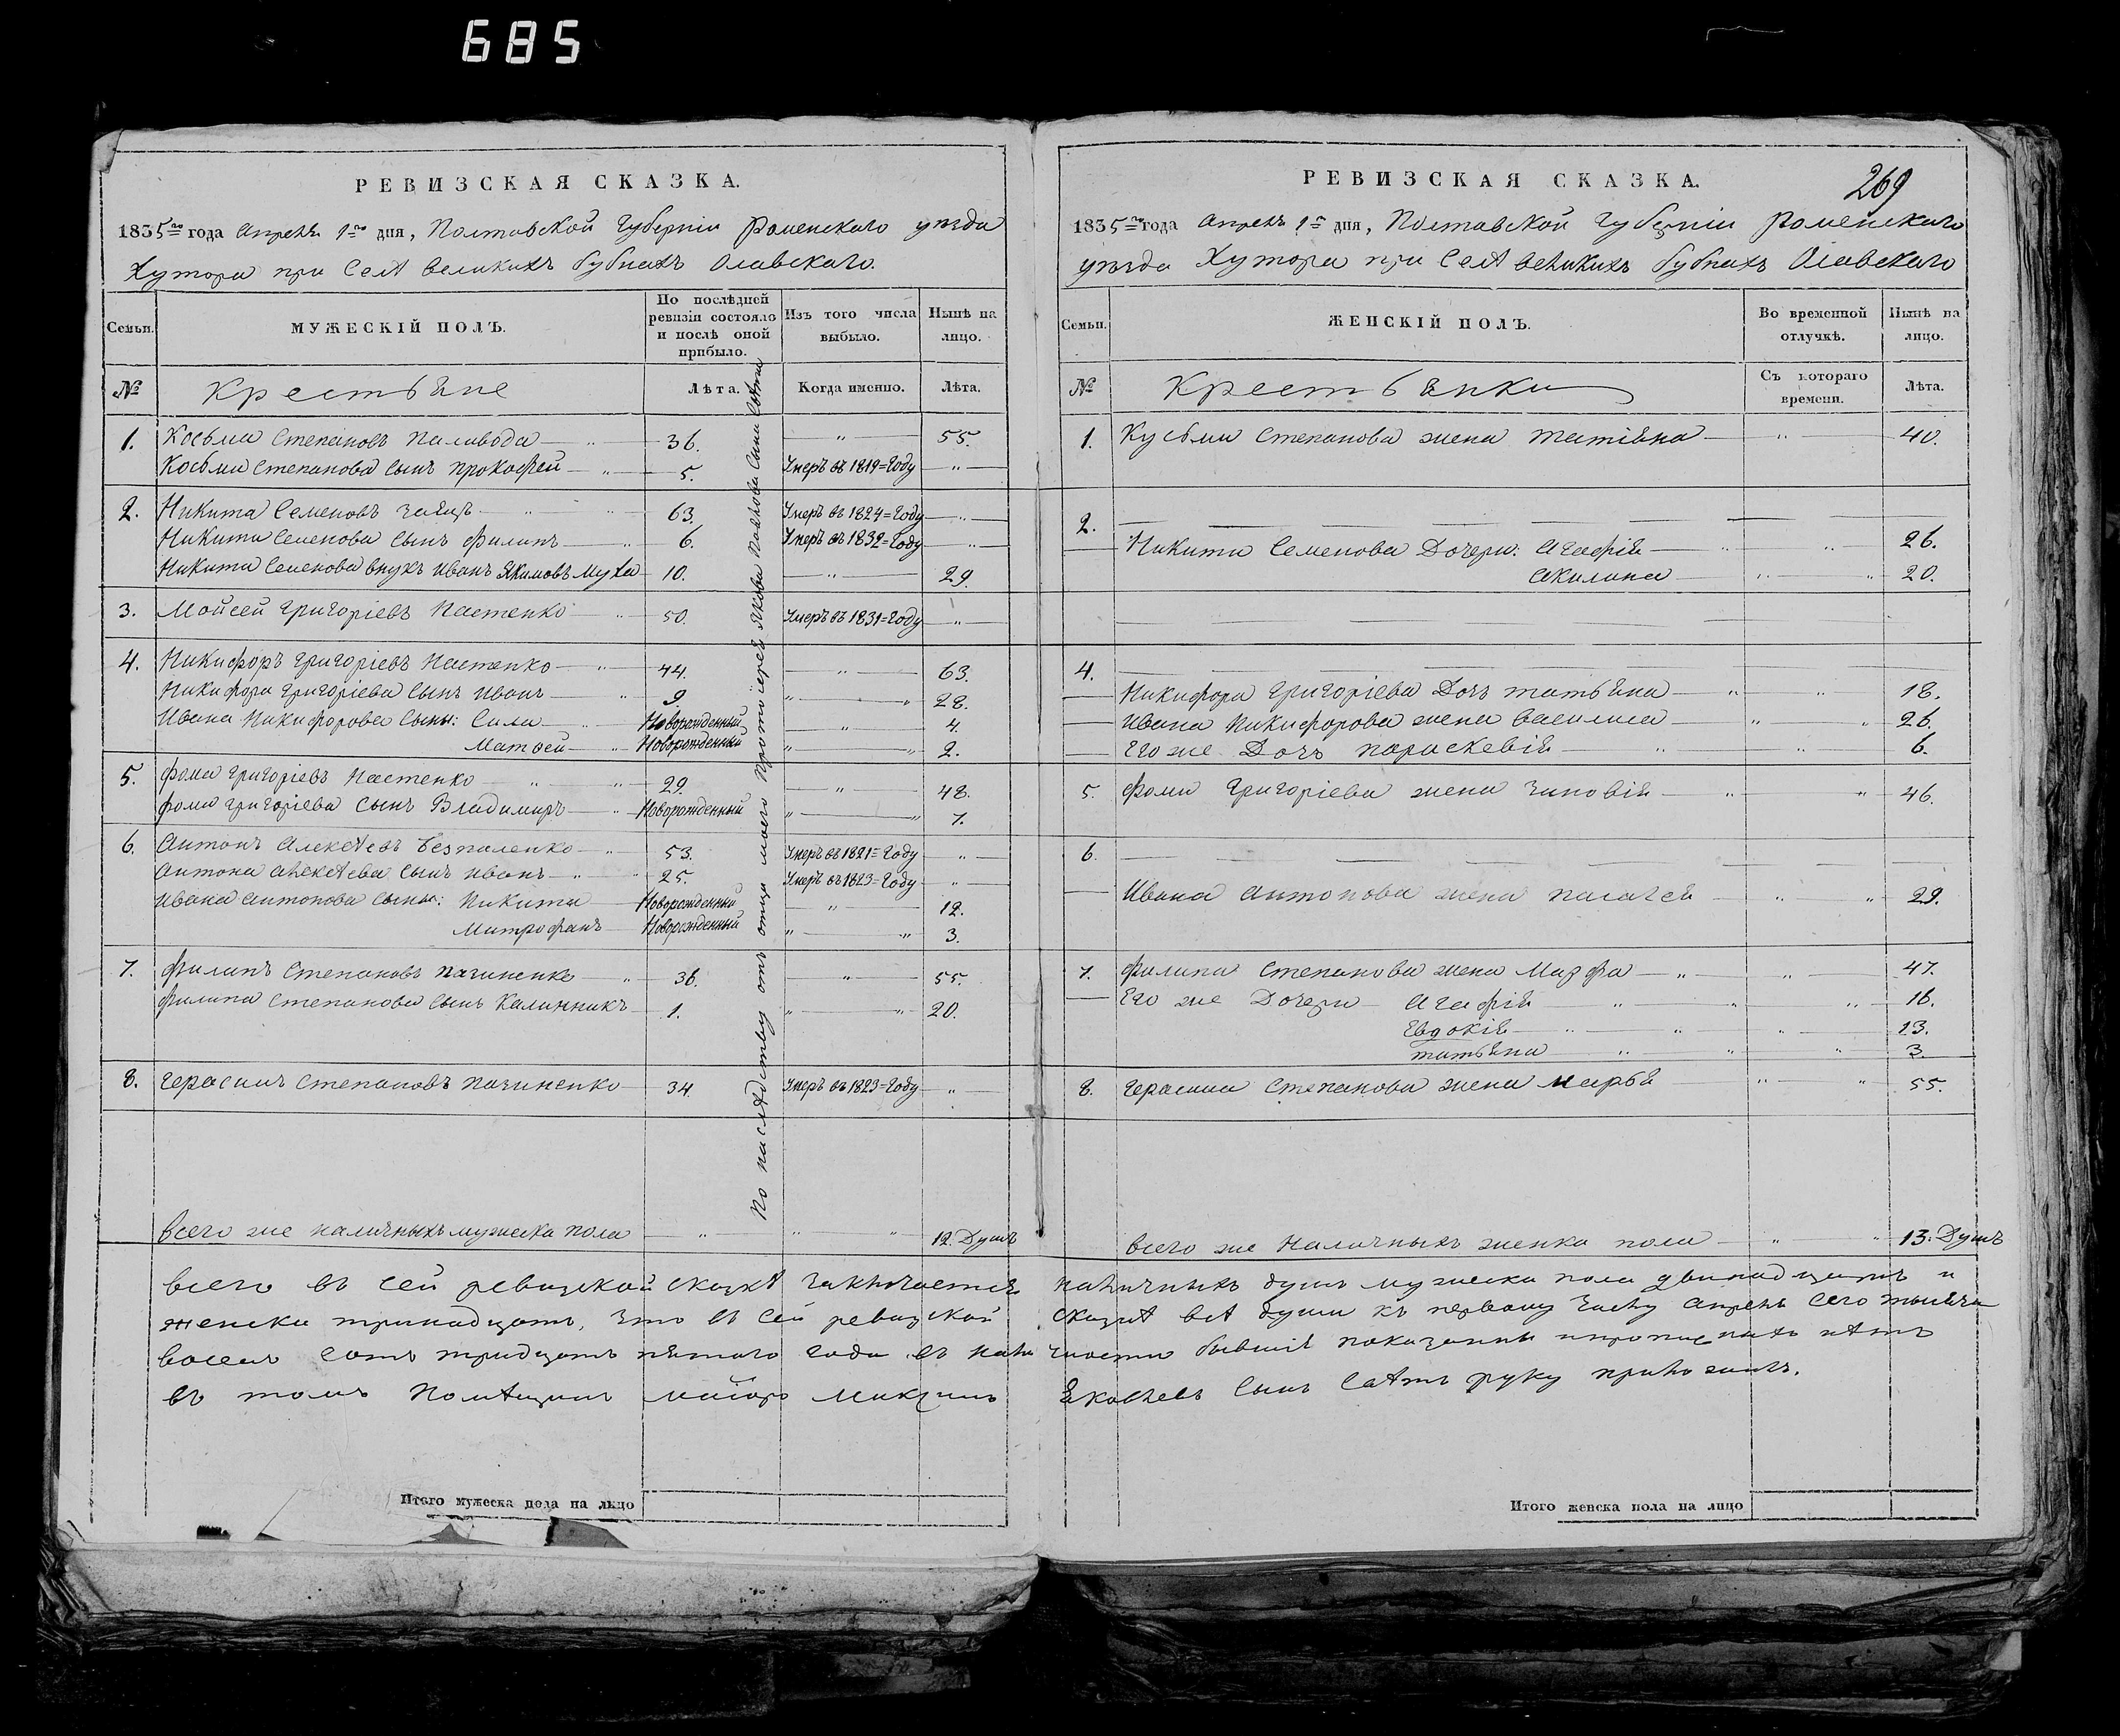 685
РЕВИЗСКАЯ СКАЗКА.
1835го года Апреля 1го дня, Полтавской Губерніи Роменского уезда
Хутора при Селѣ Великихъ Бубнахъ
Семьи.
МУЖЕСКІЙ ПОЛЪ.
По послѣдней ревизіи состояло и послѣ оной прибыло.
Изъ того числа выбыло.
Нынѣ на лицо.
№
Крестьяне
Лѣта.
Когда именно.
Лѣта.
1. Косьма Степановъ Паливода 36. " 55.
Косьми Степанова сынъ Прокофей 5. Умеръ въ 1819=Году "
2. Никита Семеновъ Заяцъ 63. Умеръ въ 1824=Году "
Никити Семенова сынъ Филипъ 6. Умеръ въ 1832=Году "
Никити Семенова внукъ Иванъ Якимовъ Муха 10. " 29.
3. Мойсей Григоріевъ Пастенко 50. Умеръ въ 1831=Году "
4. Никифоръ Григоріевъ Пастенко 44. " 63.
Никифора Григоріева сынъ Иванъ 9. " 28.
Ивана Никифорова сыны: Сила Новорожденный " 4.
Матвей Новорожденный " 2.
5. Фома Григоріевъ Пастенко 29. " 48.
Фоми Григоріева сынъ Владимиръ Новорожденный " 7.
6. Антонъ Алексѣевъ Безпаленко 53. Умеръ въ 1821=Году "
Антона Алексѣева сынъ Иванъ 25. Умеръ въ 1823=Году "
Ивана Антонова сыны: Никита Новорожденный " 12.
Митрофанъ Новорожденный " 3.
7. Филипъ Степановъ Пачиненко 36. " 55.
Филипа Степанова сынъ Калинникъ 1. " 20.
8. Герасимъ Степановъ Пачиненко 34. Умеръ въ 1823=Году "
По наслѣдству отъ отца моего Протоіерея Якова Павлова сына
Всего же наличныхъ мужеска пола " " " 12. Душъ
РЕВИЗСКАЯ СКАЗКА.
269
1835го года Апреля 1го дня, Полтавской Губерніи Роменского
уезда Хутора при Селѣ Великихъ Бубнахъ
Семьи.
ЖЕНСКІЙ ПОЛЪ.
Во временной отлучкѣ.
Нынѣ на лицо.
№
Крестьянки
Съ котораго времени.
Лѣта.
1. Кусьми Степанова жена Татіяна " 40.
2.
Никити Семенова Дочери: Агафія " 26.
Акилина " 20.
4.
Никифора Григоріева Дочь Татьяна " 18.
Ивана Никифорова жена Василиса " 26.
Его же Дочь Параскевія " 6.
5. Фоми Григоріева жена Зиновія " 46.
6.
Ивана Антонова жена Палагея " 29.
7. Филипа Степанова жена Марфа " 47.
Его же Дочери Агафія " 16.
Евдокія " 13.
Татьяна " 3
8. Герасима Степанова жена Марья " 55.
Всего же наличныхъ женска пола " 13. Душъ
Всего въ сей ревизской сказкѣ заключается наличныхъ душъ мужеска пола двинадцать и
женска тринадцать, Что въ сей ревизской сказкѣ всѣ души къ первому числу Апреля сего тысяча
восемъ сотъ тридцать пятого года въ наличности бывшія показанны и прописныхъ нѣтъ
въ томъ Помѣщикъ маіоръ Максимъ Яковлевъ сынъ руку приложилъ.
Итого мужеска пола на лицо
Итого женска пола на лицо